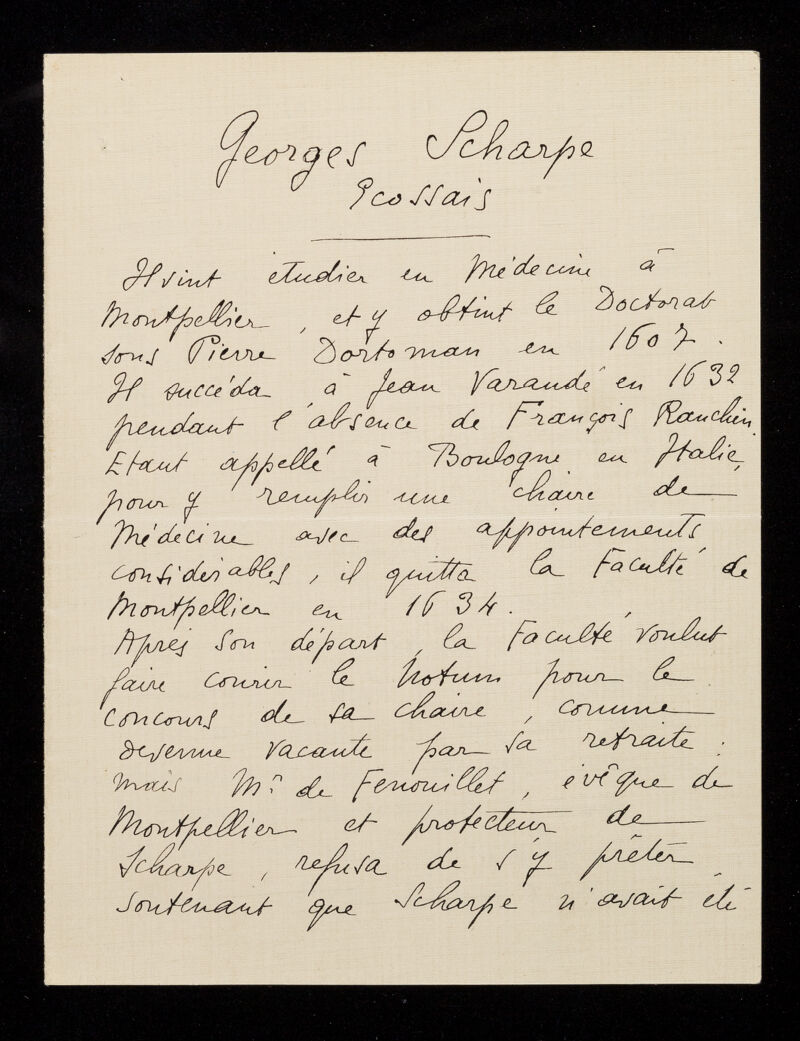 Georges Scharpe
Ecossais
Il vint étudier en Médecine à
Montpellier, et y obtint le Doctorat
sous Pierre Dortoman en 1607.
Il succéda à Jean Varandé en 1632
pendant l'absence de François Ranchin.
Etant appellé à Boulogne en Italie,
pour y remplir une chaire de
Médecine avec des appointements
considérables, il quitta la Faculté de
Montpellier en 1634.
Après son départ, la Faculté voulut
faire courir le Notum pour le
concours de sa chaire, comme
devenue vacante par sa retraite:
mais Mr. de Fenouillet, évêque de
Montpellier et protecteur de
Scharpe, refusa de s'y prêter,
soutenant que Scharpe n'avait été